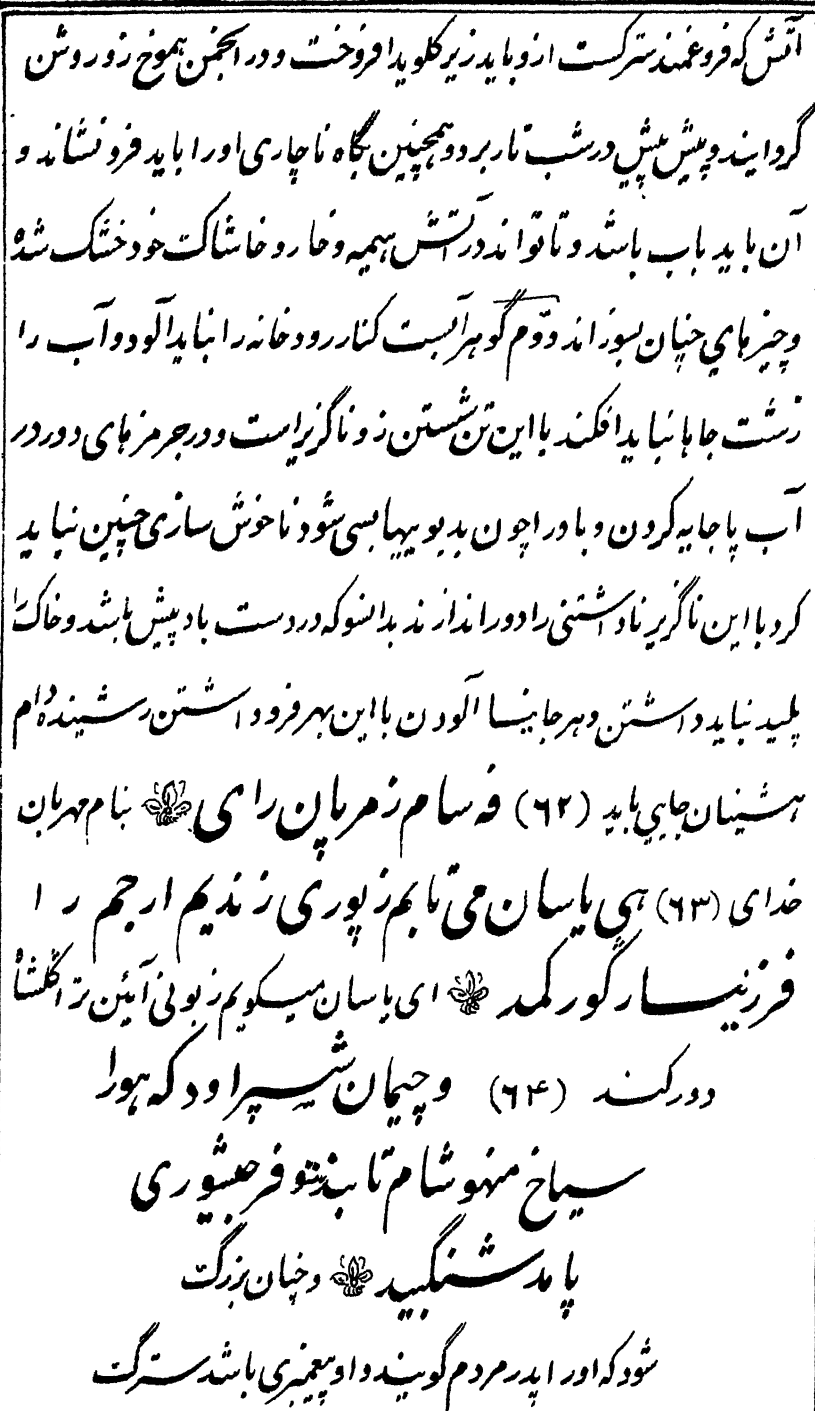 آتش که فروغمند سترگست ازو باید زیر کلوید افروخت و در انجمن هموخ زو روشن
گروایند و پیش پیش در شب تار برد و همچنین بگاه ناچاری او را باید فرو نشاند و
آن باید باب باشد و تا تواند در آتش هیمه و خار و خاشاک خود خشک شده
و چیزهای چنان بسوزاند و دوم گوهر آبست کنار رودخانه را نباید آلود و آب را
زشت جاها نباید افکند با این تن شستن زو ناگزیر است و در جرمزهای دور در
آب پا جابه کردن و باد را چون بد بویها بسی شود ناخوش سازی چنین نباید
کرد با این ناگزیر ناداشتنی را دور اندازند بدانسو که در دست باد پیش باشد و خاک را
پلید نباید داشتن و هر جا نسا آلودن با این بهر فرود داشتن
جایی باید (۶۲) فه سام زمرپان رای بنام مهربان
خدای (۶۳) هی یاسان می تابم زپوری زندیم ارجم را
فرزنیسار گورکمد ای یاسان میگویم زبونی آیین ترا گلشاه
دور کند (۶۴) و چیمان شیپر اود که هورا
سیاخ منهوشام تابند و فرجیشوری
پامد شنگبید و چنان بزرگ
شود که او را پدر مردم گویند و او پیغمبری باشد سترگ